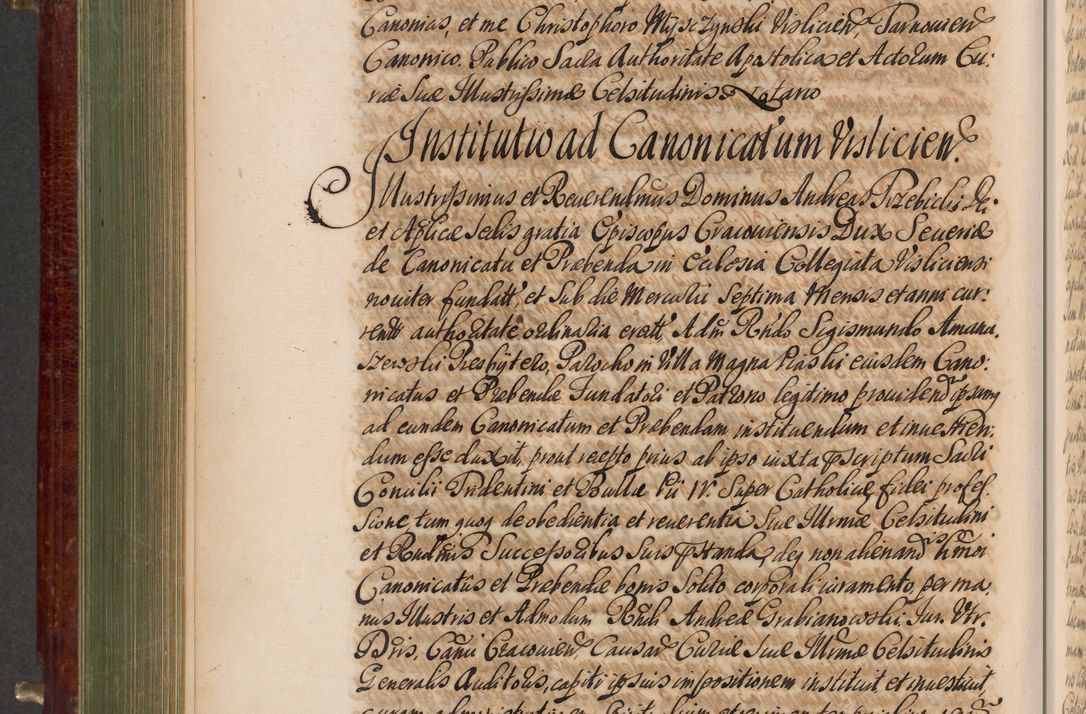 Canonias, et me Christophoro Myszynski Vislicien, Tarnovien
Canonico. Publico Sacra Authoritate Apostolica et Actorum Cu:
riæ Suæ Illustrissimæ Celsitudinis Notario
Institutio ad Canonicatum Vislicien.
Illustrissimus et Reverendmus Dominus Andreas Trzebicki Dei
et Aplicæ Sedis gratia Episcopus Cracoviensis Dux Severiæ
de Canonicatu et Præbenda in Ecclesia Collegiata Visliciensi
noviter fundatt, et Sub die Mercurii Septima Mensis et anni cur:
rentt authoritate ordinaria erectt, Adm Rndo Sigismundo Amana
Presbytero, Parocho in Villa Magna eiusdem Cano:
nicatus et Præbendæ Fundatori et Patrono legitimo providend ipsumq
ad eundem Canonicatum et Præbendam instituendum et investien:
dum esse duxit, prout recepto prius ab ipso iuxta pscriptum Sacri
Concilii Tridentini et Bullæ Pii IV. Super Catholicæ fidei profes:
sione, tum quoq de obedientia et reverentia Suæ Illrmæ Celsitudini
et Rndmis Successoribus Suis pstanda, deq non alienandis hmoi
Canonicatus et Præbendæ bonis Solito corporali iuramento, per ma:
nus Illustris et Admodum Rndi Andreæ Grabianowski, Iur. Vtr.
Dris, Canci Cracovien Causar Curiæ Suæ Illrmæ Celsitudinis
Generalis Auditoris, capiti ipsius impositionem instituit et investivit,
curam administrationem